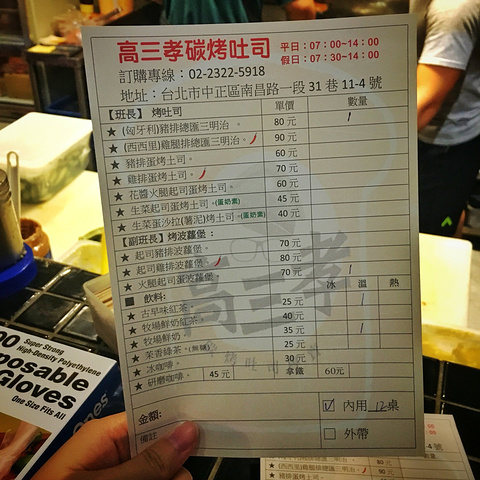 高三孝碳烤吐司
平日：07：00~14：00
假日：07：30~14：00
訂購專線：02-2322-5918
地址：台北市中正區南昌路一段 31 巷 11-4 號
【班長】 烤吐司 單價 數量
★ (匈牙利)豬排總匯三明治。 80 元
★ (西西里)雞腿排總匯三明治。 90 元
★ 豬排蛋烤土司。 60 元
★ 雞排蛋烤土司。 70 元
★ 花醬火腿起司蛋烤土司。 60 元
★ 生菜起司蛋烤土司。(蛋奶素) 45 元
★ 生菜蛋沙拉(薯泥)烤土司。(蛋奶素) 40 元
【副班長】烤波蘿堡：
★ 起司豬排波蘿堡。 70 元
★ 起司雞排波蘿堡。 80 元
★ 火腿起司蛋波蘿堡。 70 元
■ 飲料: 冰 溫 熱
★ 古早味紅茶。 25 元
★ 牧場鮮奶紅茶。 40 元
★ 牧場鮮奶。 35 元
★ 茉香綠茶。(無糖) 25 元
★ 冰咖啡。 30 元
★ 研磨咖啡。 45 元 拿鐵 60元
金額: ☑ 內用 12 桌
備註 □ 外帶
高三孝
Super Strong
High-Density Polyethylene
Gloves
One Size Fits All